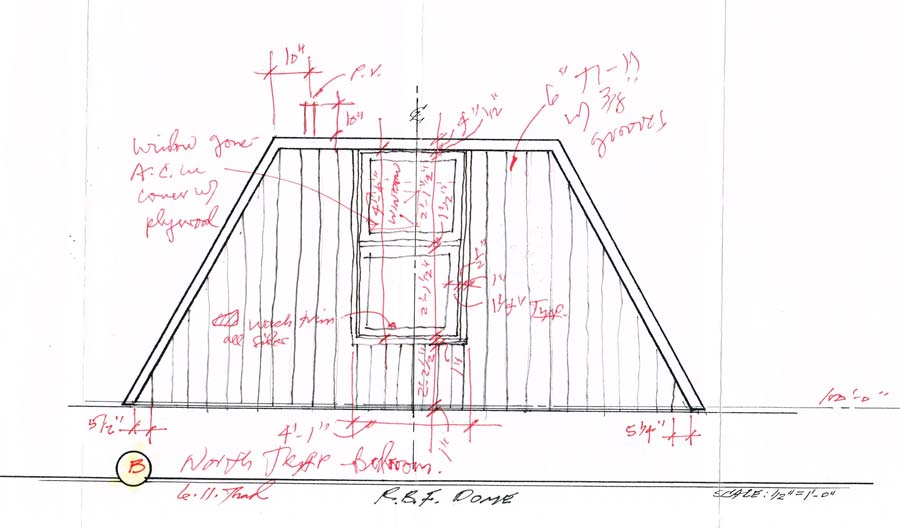 10"
P.V.
10"
℄
4" 1/2"
6" T1-11
w/ 3/8"
grooves
Window gone
A.C. in
cover w/
plywood
4'-6"
WINDOW
2'-1 1/2"
-1 1/2"
2"
1"
1 1/4" TYP.
2'-1 1/2"
trim
all sides
2'-2 1/2"
1"
100'-0"
5 1/2"
4'-1"
1"
5 1/4"
B
North bedroom.
R.B.F. DOME
SCALE: 1/2" = 1'-0"